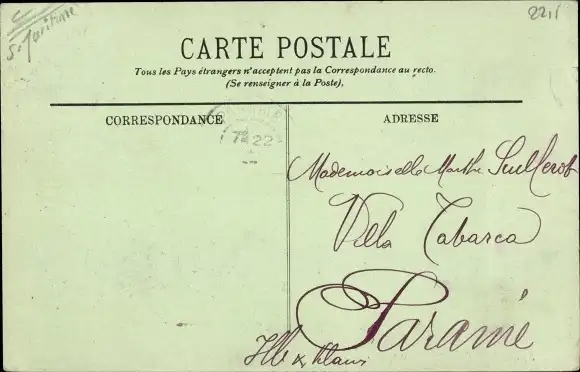 S. Maritime
2211
CARTE POSTALE
Tous les Pays étrangers n'acceptent pas la Correspondance au recto.
(Se renseigner à la Poste).
CORRESPONDANCE
ADRESSE
22
Mademoiselle Marthe
Villa Tabarca
Paramé
Ille &